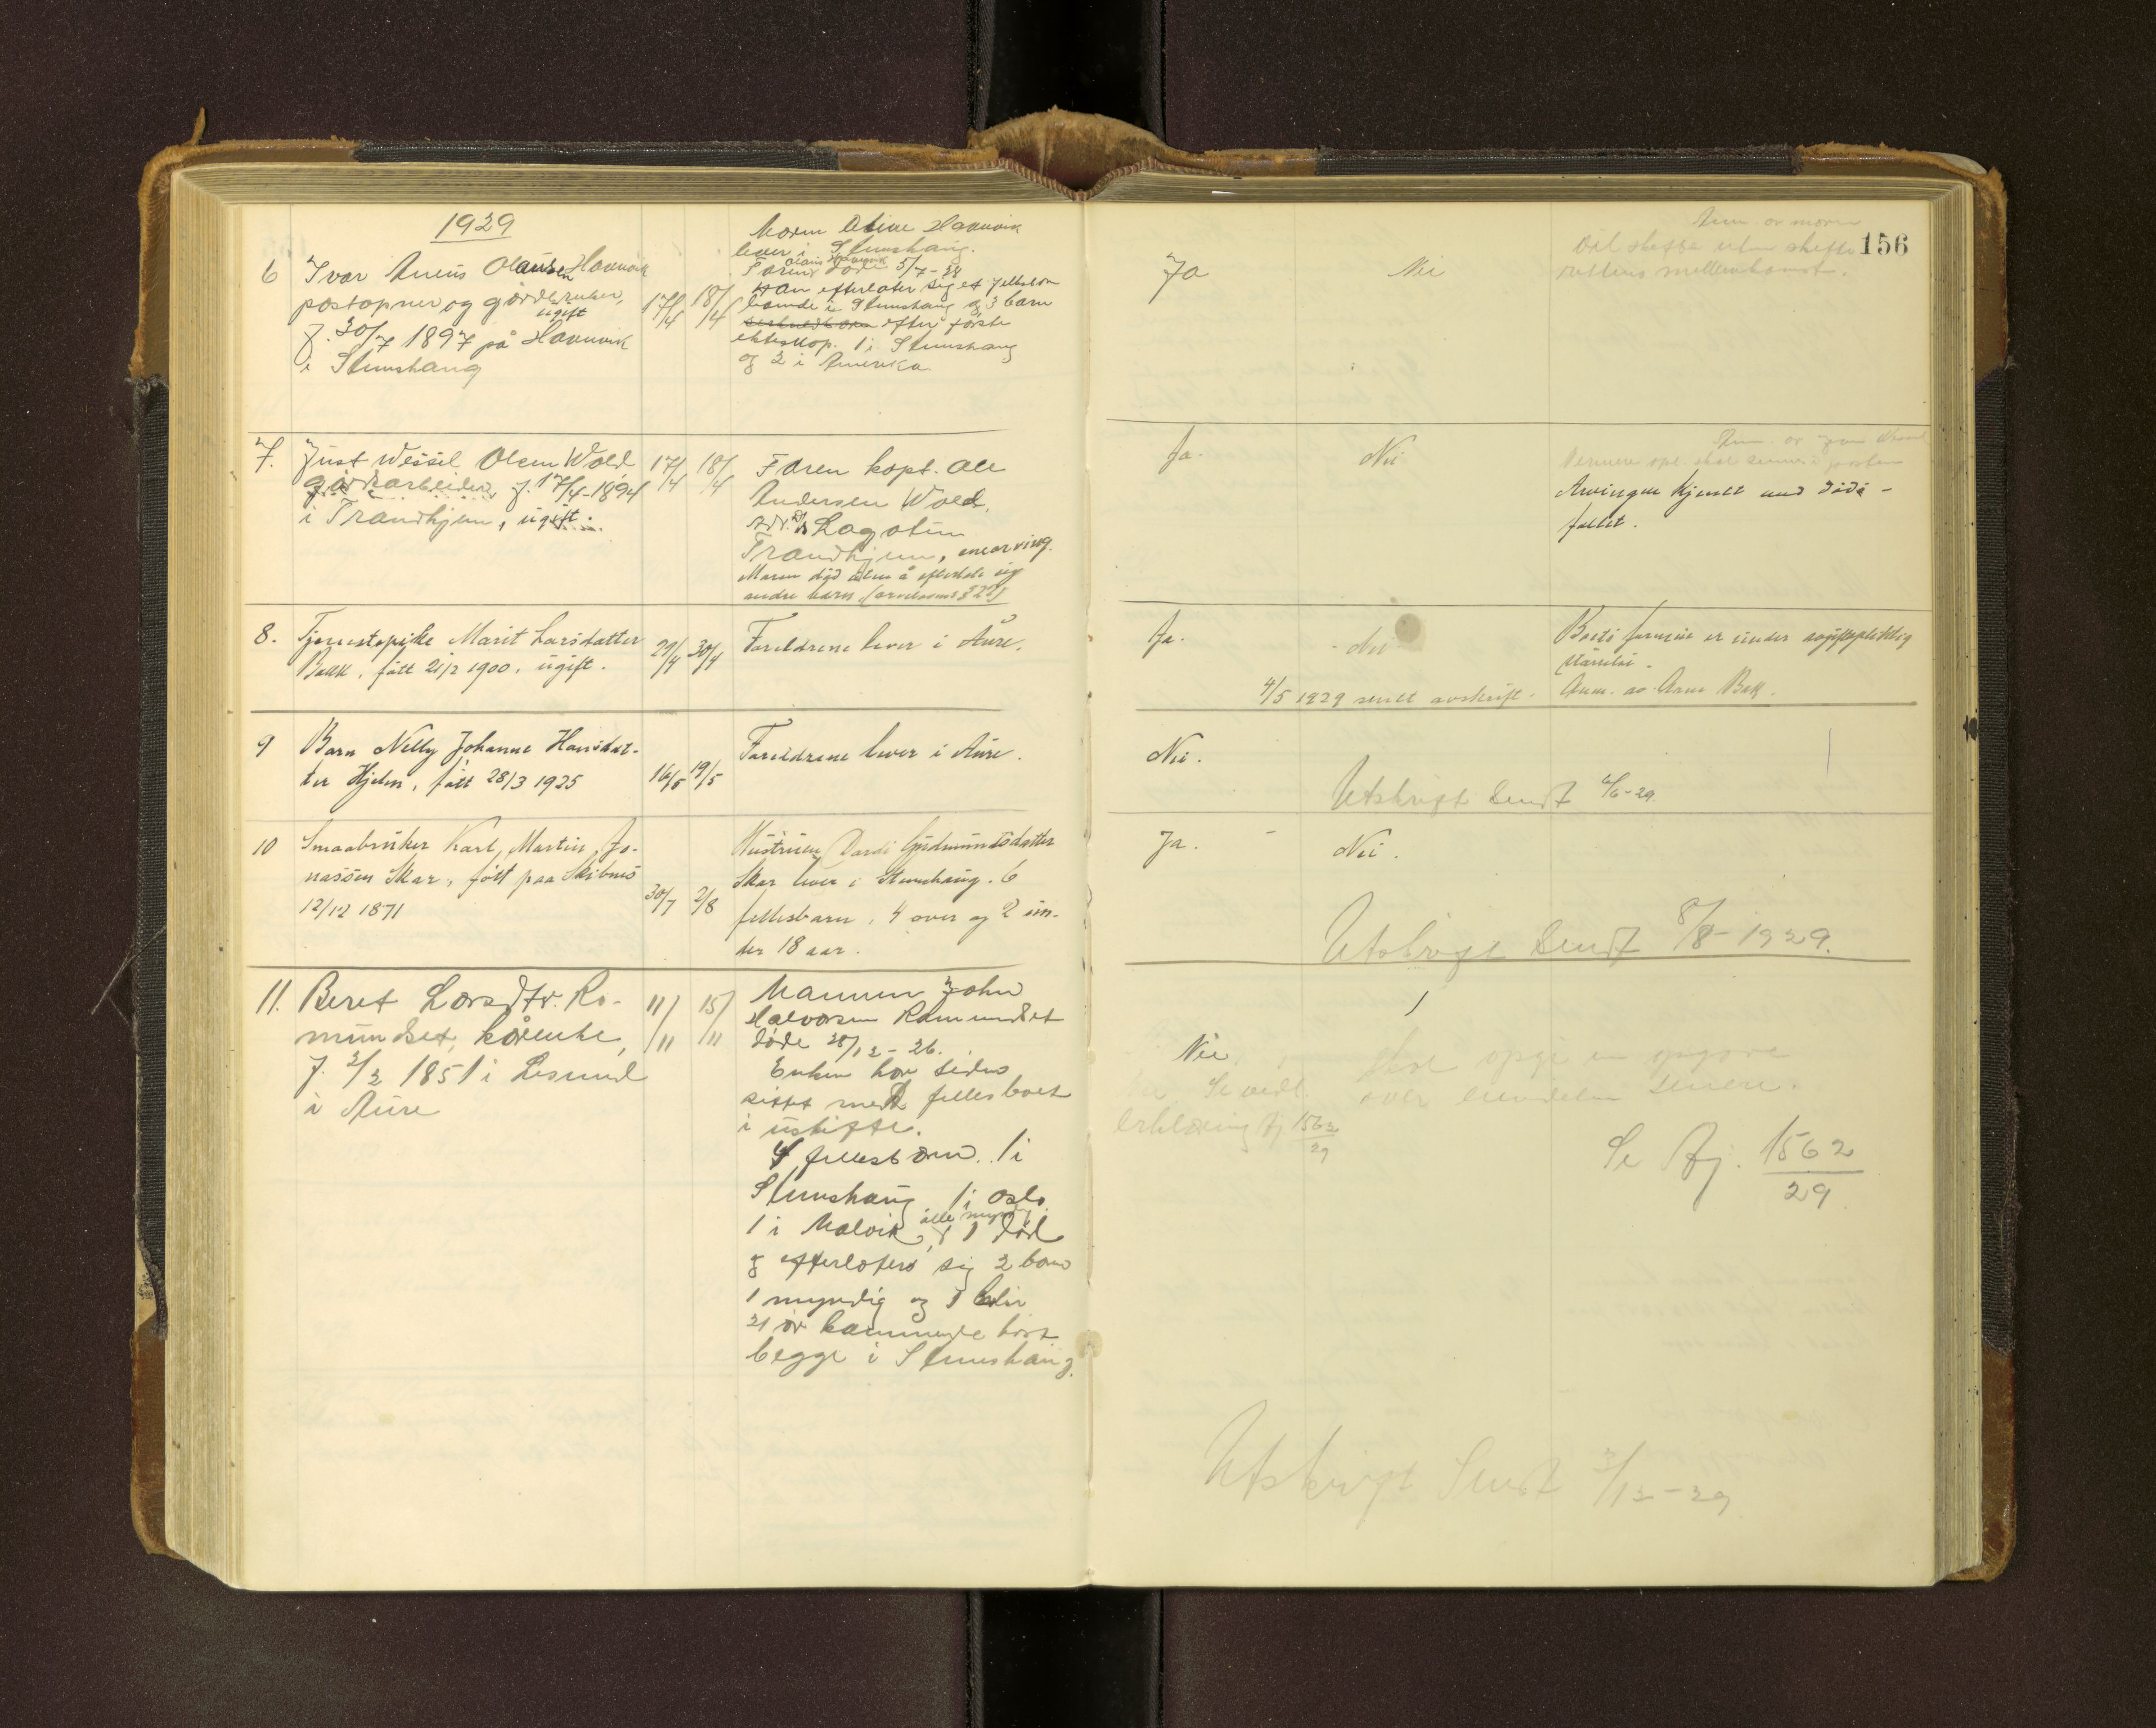 1929
6 Ivar Aneus Olausen Havnvik
postopner og gårdbruker,
ugift
f. 30/7 1897 på Havnvik
i Stemshaug
17/4 18/4
Moren Oline Havnvik
lever i Stemshaug.
Faren Olaus Havnvik døde 5/7-28
Han efterlater sig et fellesbarn
boende i Stemshaug og 3 barn
efter første
ekteskap. 1 i Stemshaug
og 2 i Amerika
Ja
Nei
Anm. av moren
Vil skifte uten skifte
rettens mellemkomst.
156
7. Just Wessel Olsen Wold
gårdsarbeider, f. 17/4-1894
i Trondhjem, ugift.
17/4 18/4
Faren kapt. Ole
Andersen Wold,
adr. D/s Lagatun
Trondhjem, enearving.
Moren død uten å efterlate sig
andre barn (arvelovens § 32)
Ja.
Nei
Anm. av
Nærmere opl. skal sendes i posten
Arvingen kjendt med døds-
fallet.
8. Tjenestepike Marit Larsdatter
Bakk, født 21/2 1900, ugift.
29/4 30/4
Foreldrene lever i Aure.
Ja.
Nei
4/5 1929 sendt avskrift.
Boets formue er under avgiftspliktig
størrelse.
Anm. av Arne Bakk.
9 Barn Nelly Johanne Hansdat-
ter Hjelm, født 28/3 1925
16/5 19/5
Foreldrene lever i Aure.
Nei.
Utskrift Sendt 6/6-29.
10 Smaabruker Karl Martin Jo-
nassen Skar, født paa Skibnes
12/12 1871
30/7 2/8
Hustruen Dordi Gudmundsdatter
Skar lever i Stemshaug. 6
fellesbarn, 4 over og 2 un-
der 18 aar.
Ja.
Nei.
Utskrift Sendt 8/8-1929.
11. Beret Larsdtr. Ro-
mundset, kårenke,
f. 2/2 1851 i Lesund
i Aure
11/11 15/11
Mannen John
Halvorsen Romundset
døde 28/12-26.
Enken har siden
sittet med fellesboet
i uskifte.
4 fellesbarn. 1 i
Stemshaug 1 i Oslo
1 i Malvik, alle myndig & 1 død
og efterlater sig 2 barn
1 myndig og 1 blir
21 år kommende høst
begge i Stemshaug.
Nei.
Se vedl.
erklæring Aj 1562/29
skal opgi en opgave
over eiendelen senere.
Se Aj. 1562/29
Utskrift Sendt 3/12-29